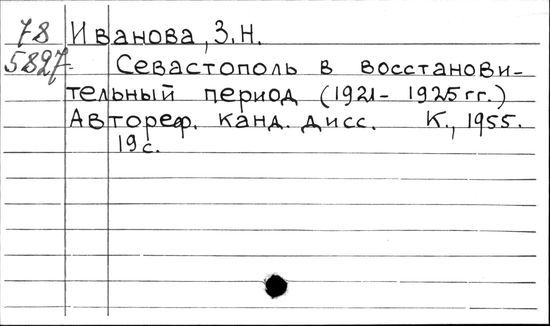 78 Иванова, З.Н.
5827 Севастополь в восстанови-
тельный период (1921-1925гг.)
Автореф. канд. дисс. К., 1955.
19с.